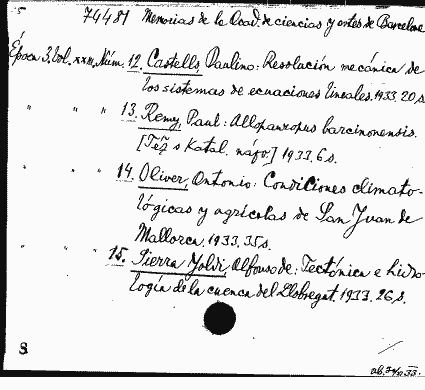 5 74481 Memorias de la Acad. de ciencias y artes de Barcelona
Época 3, Vol. XXII, Núm. 12. Castells, Paulino: Resolución mecánica de
los sistemas de ecuaciones lineales. 1933. 20 s.
" " " 13. Remy, Paul: Allopauropus barcinonensis.
[Též s Katal. nápo.] 1933. 6 s.
" " " 14. Oliver, Antonio: Condiciones climato-
lógicas y agrícolas de San Juan de
Mallorca. 1933. 35 s.
" " " 15. Sierra Yoldi, Alfonso de: Tectónica e hidro-
logía de la cuenca del Llobregat. 1933. 26 s.
8